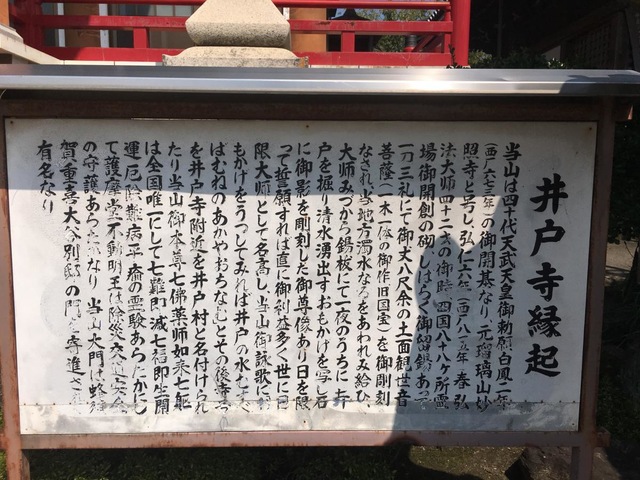 井戸寺縁起
当山は四十代天武天皇御勅願白鳳二年
(西ﾉ六七三年)の御開基なり、元瑠璃山妙
照寺と号し弘仁六年(西ﾉ八一五年)春弘
法大師四十二才の御時、四国八十八ヶ所霊
場御開創の砌、しばらく御留錫あつ
一刀三礼にて御丈八尺余の十一面観世音
菩薩(一木一体の御作旧国宝)を御彫刻
なされ、当地方濁水なるをあわれみ給ひ、
大師みづから錫杖にて一夜のうちに井
戸を掘り清水湧出すおもかげを写し石
に御影を彫刻した御尊像あり日を限
って誓願すれば直に御利益多く世に日
限大師として名高し、当山御詠歌に
もかげをうつしてみれば井戸の水むすべ
ばむねのあかやおちなむとその後寺
を井戸寺附近を井戸村と名付けられ
たり当山御本尊七佛薬師如来七躯
は全国唯一にして七難即滅七福即生開
運厄除薬病平癒の霊験あらたかにし
て護摩堂不動明王は除災
の守護あらたかなり、当山大門は蜂須
賀重喜大谷別邸の門を寄進され
有名なり